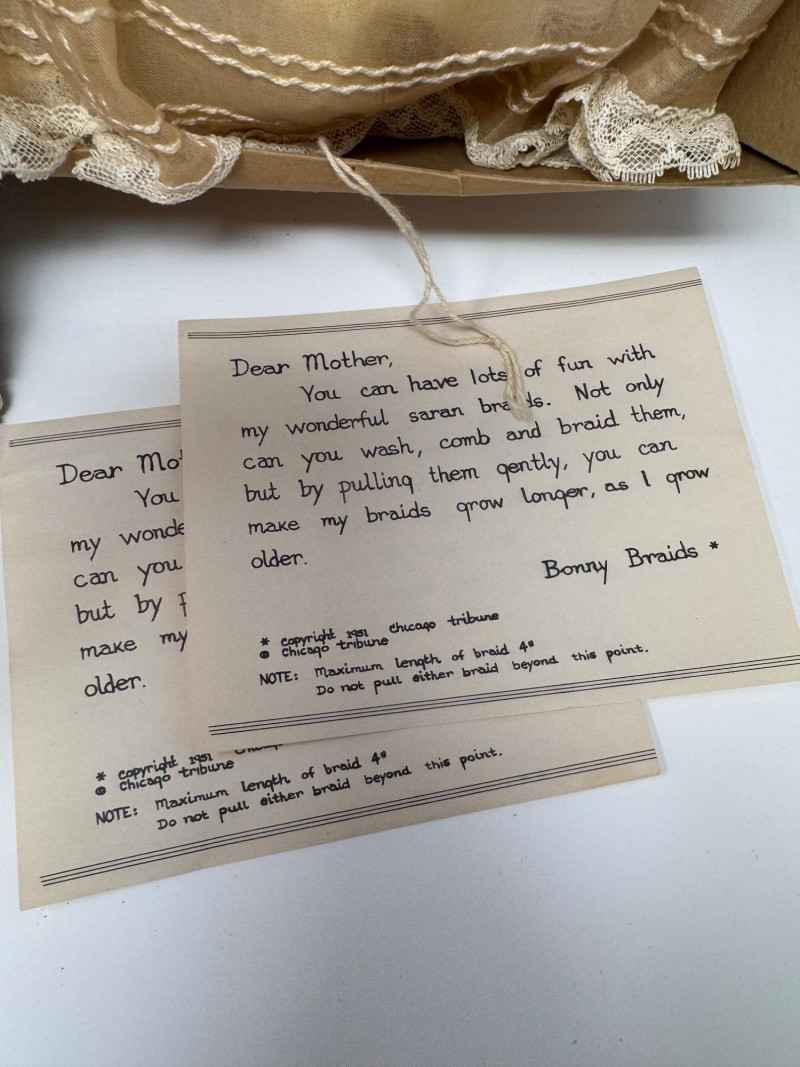 Dear Mother,
You can have lots of fun with
my wonderful saran braids. Not only
can you wash, comb and braid them,
but by pulling them gently, you can
make my braids grow longer, as I grow
older.
Bonny Braids *
* copyright 1951 Chicago tribune
© Chicago tribune
NOTE: Maximum length of braid 4"
Do not pull either braid beyond this point.
Dear Mot
You
my wonde
can you
but by
make my
older.
* copyright 1951
© Chicago tribune
NOTE: Maximum length of braid 4"
Do not pull either braid beyond this point.